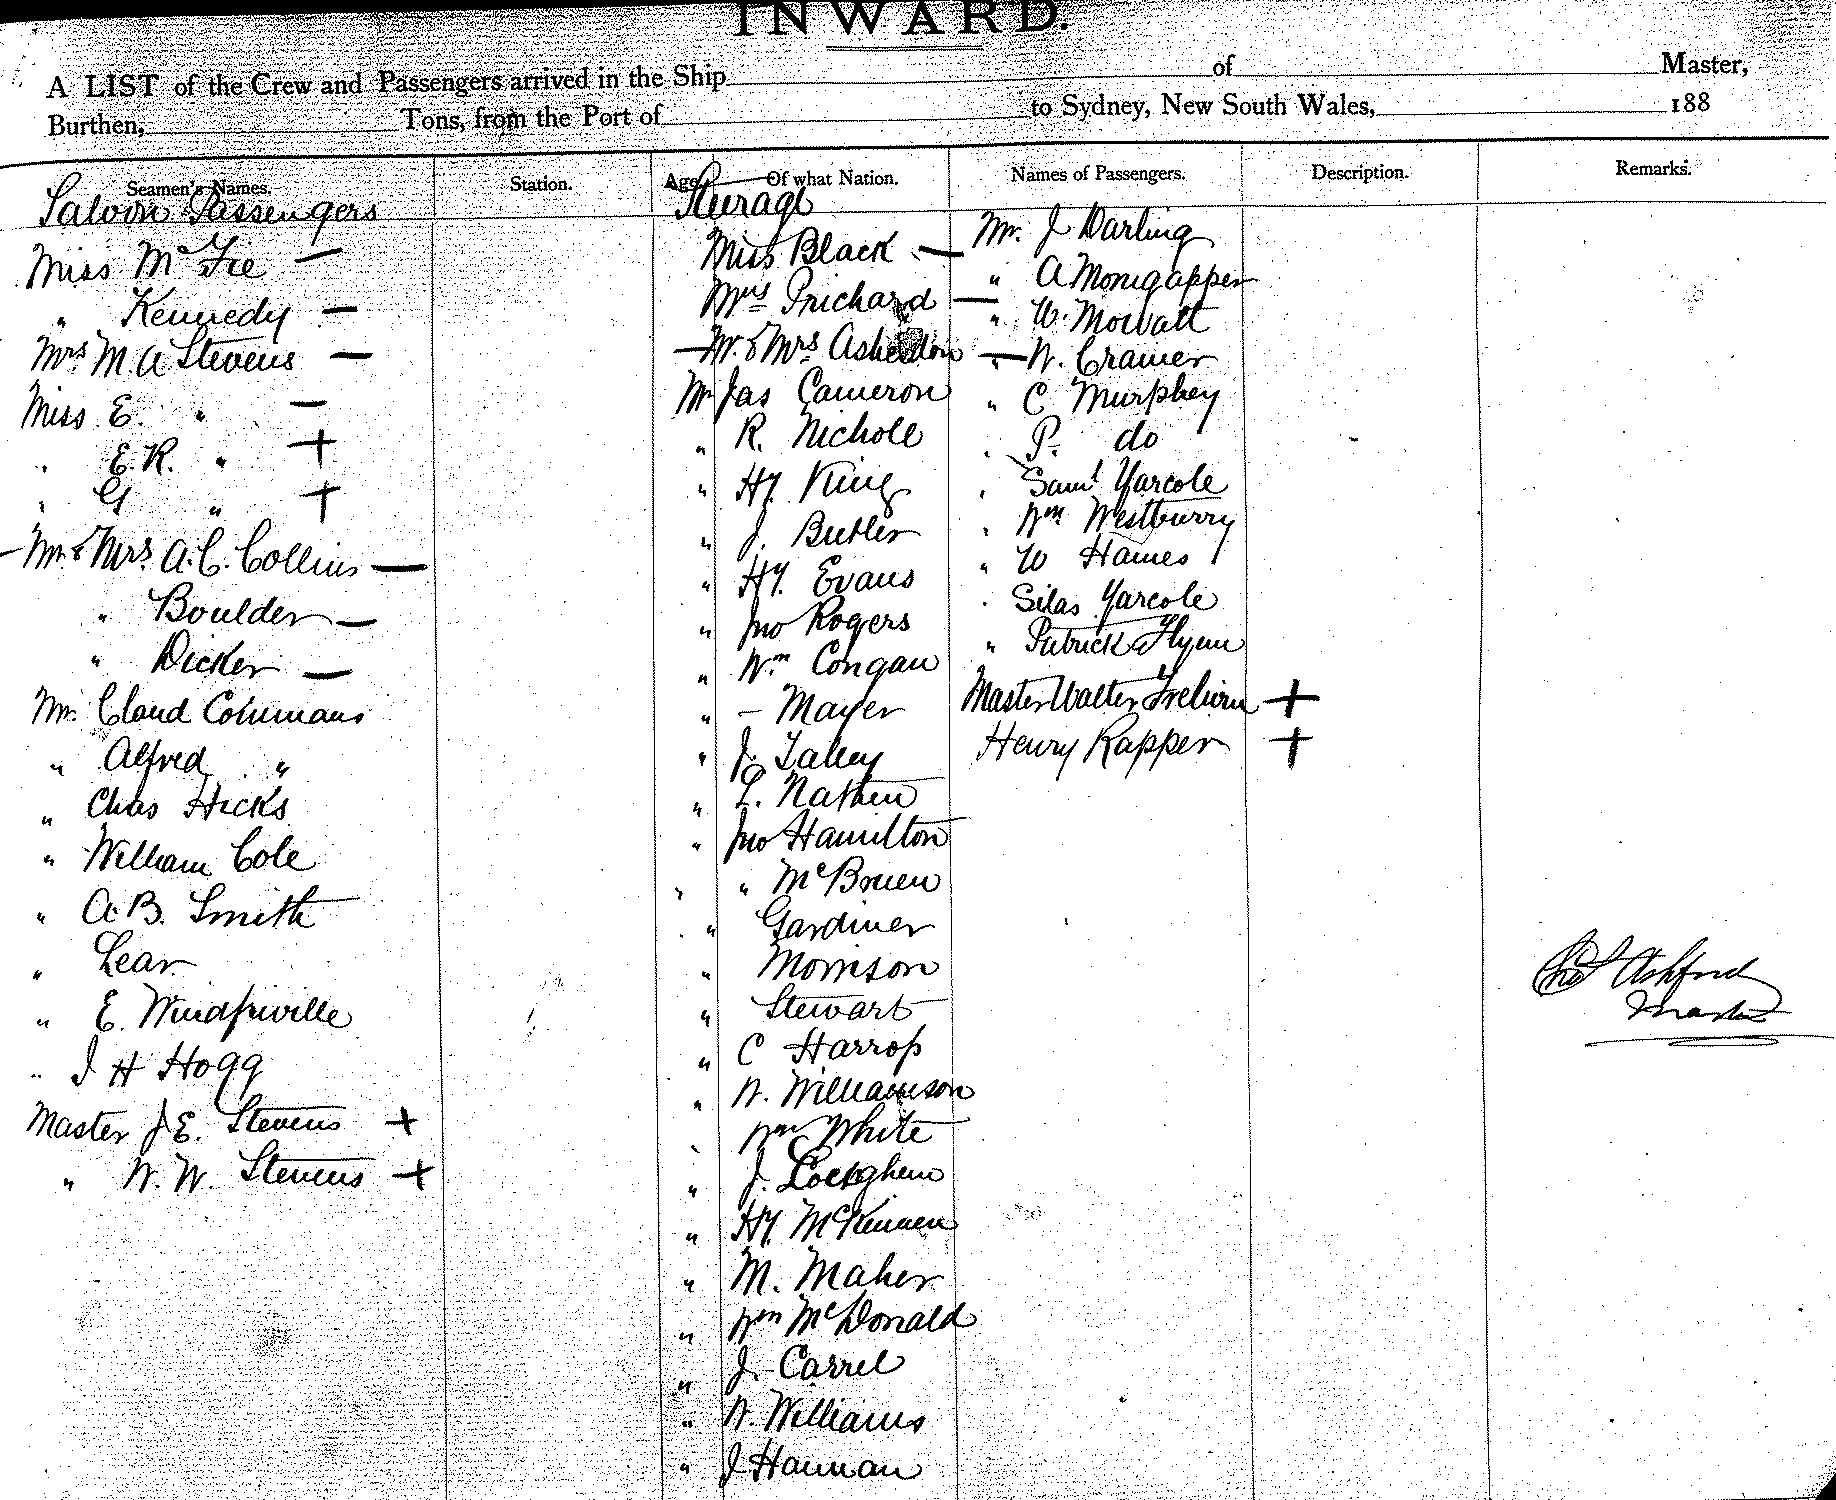 INWARD.
A LIST of the Crew and Passengers arrived in the Ship of Master,
Burthen, Tons, from the Port of to Sydney, New South Wales, 188
Seamen's Names. Station. Age. Of what Nation. Names of Passengers. Description. Remarks.
Saloon Passengers
Miss McFie —
" Kennedy —
Mrs M A Stevens —
Miss E. " —
" E. R. " +
" G " +
— Mr & Mrs A. C. Collins —
" Boulder —
" Dicker —
Mr. Claud Cohumans
" Alfred "
" Chas Hicks
" William Cole
" A. B. Smith
" Lear
" E.
" J H Hogg
Master J E. Stevens +
" W. W. Stevens +
Steerage
Miss Black —
Mrs Prichard —
— Mr. & Mrs —
Mr Jas Cameron
" R. Nicholl
" Hy. King
" J. Butler
" Hy. Evans
" Jno Rogers
" Wm Congan
" — Mayer
" J. Talley
" L. Nathen
" Jno Hamilton
" " McBruen
" Gardiner
" Morrison
" Stewart
" C Harrop
" W. Williamson
" Wm White
" J.
" Hy. McKinnen
" M. Maher
" Wm McDonald
" J. Carrel
" W. Williams
" J Hannan
Mr. J Darling
" A
" W. Mowatt
" W. Cramer
" C Murphey
" P. do
" Saml Yarcole
" Wm Westburry
" W Hames
" Silas Yarcole
" Patrick Flynn
Master Walter +
Henry Rapper +
Ashford
Master